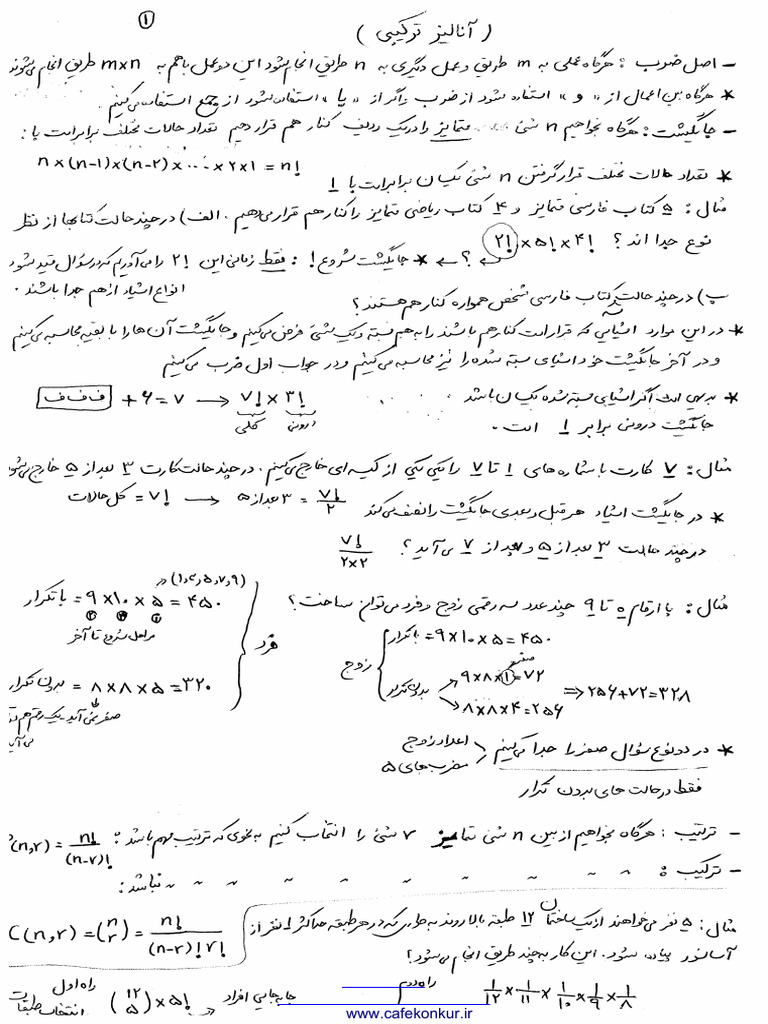 ۱
( آنالیز ترکیبی )
- اصل ضرب : هرگاه عملی به m طریق و عمل دیگری به n طریق انجام بشود این دو عمل با هم به m×n طریق انجام می‌شوند
* هرگاه بین اعمال از «و» استفاده شود از ضرب و اگر از «یا» استفاده شود از جمع استفاده می‌کنیم
- جایگشت : هرگاه بخواهیم n شیٔ متمایز را در یک ردیف کنار هم قرار دهیم تعداد حالات مختلف برابر است با :
n×(n-1)×(n-2)×...×۲×۱ = n!
* تعداد حالات مختلف قرار گرفتن n شیٔ یکسان برابر است با ۱
مثال : ۵ کتاب فارسی متمایز و ۴ کتاب ریاضی متمایز را کنار هم قرار می‌دهیم . الف) در چند حالت کتابها از نظر
نوع جدا اند ؟ ۲! × ۵! × ۴!
؟ * جایگشت شروع ! : فقط زمانی این ۲! را می‌آوریم که در سؤال قید شود
انواع اشیاء از هم جدا باشند .
ب) در چند حالت ۳ کتاب فارسی مشخص همواره کنار هم هستند ؟
* در این موارد اشیایی که قرار است کنار هم باشند را به هم بسته و یک شیٔ فرض می‌کنیم و جایگشت آن ها را با بقیه محاسبه می‌کنیم
و در آخر جایگشت خود اشیای بسته شده را نیز محاسبه می‌کنیم و در جواب اول ضرب می‌کنیم
* بدیهی است اگر اشیای بسته شده یکسان باشد
ف ف ف + ۶ = ۷ → ۷! × ۳!
جایگشت درونی برابر ۱ است .
کلی درونی
مثال : ۷ کارت با شماره های ۱ تا ۷ را یکی یکی از کیسه ای خارج می‌کنیم . در چند حالت کارت ۳ بعد از ۵ خارج می‌شود
* در جایگشت اشیاء هر قبل و بعدی جایگشت را نصف می‌کند
کل حالات = ۷! → ۳ بعد از ۵ = ۷!/۲
در چند حالت ۳ بعد از ۵ و بعد از ۷ می‌آید ؟ ۷!/۲×۲
مثال : با ارقام ۰ تا ۹ چند عدد سه رقمی زوج و فرد می‌توان ساخت ؟
زوج
با تکرار = ۹×۱۰×۵ = ۴۵۰
صفر
بدون تکرار
۹×۸×۱ = ۷۲
۸×۸×۴ = ۲۵۶
⇒ ۲۵۶+۷۲ = ۳۲۸
فرد
(۱,۳,۵,۷,۹)
با تکرار = ۹×۱۰×۵ = ۴۵۰
مراحل شروع تا آخر
بدون تکرار = ۸×۸×۵ = ۳۲۰
صفر نمی آید یک رقم هم
* در دو نوع سؤال صفر را جدا می‌کنیم
اعداد زوج
مضرب های ۵
فقط در حالت های بدون تکرار
- ترتیب : هرگاه بخواهیم از بین n شیٔ متمایز r شیٔ را انتخاب کنیم به نحوی که ترتیب مهم باشد : (n,r) = n!/(n-r)!
- ترکیب : " " " " " " " " نباشد :
C(n,r) = (n r) = n!/(n-r)! r!
مثال : ۵ نفر می‌خواهند از یک ساختمان ۱۲ طبقه بالا روند به طوری که در هر طبقه حداکثر ۱ نفر از
آسانسور پیاده شود . این کار به چند طریق انجام می‌شود ؟
راه اول
انتخاب طبقات
(۱۲ ۵) × ۵!
جابه جایی افراد
راه دوم
۱/۱۲ × ۱/۱۱ × ۱/۱۰ × ۱/۹ × ۱/۸
www.cafekonkur.ir